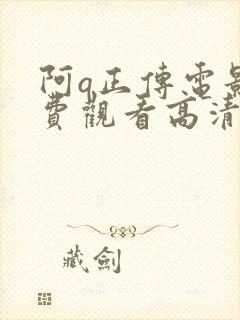 阿q正傳電影
費觀看高清
藏劍